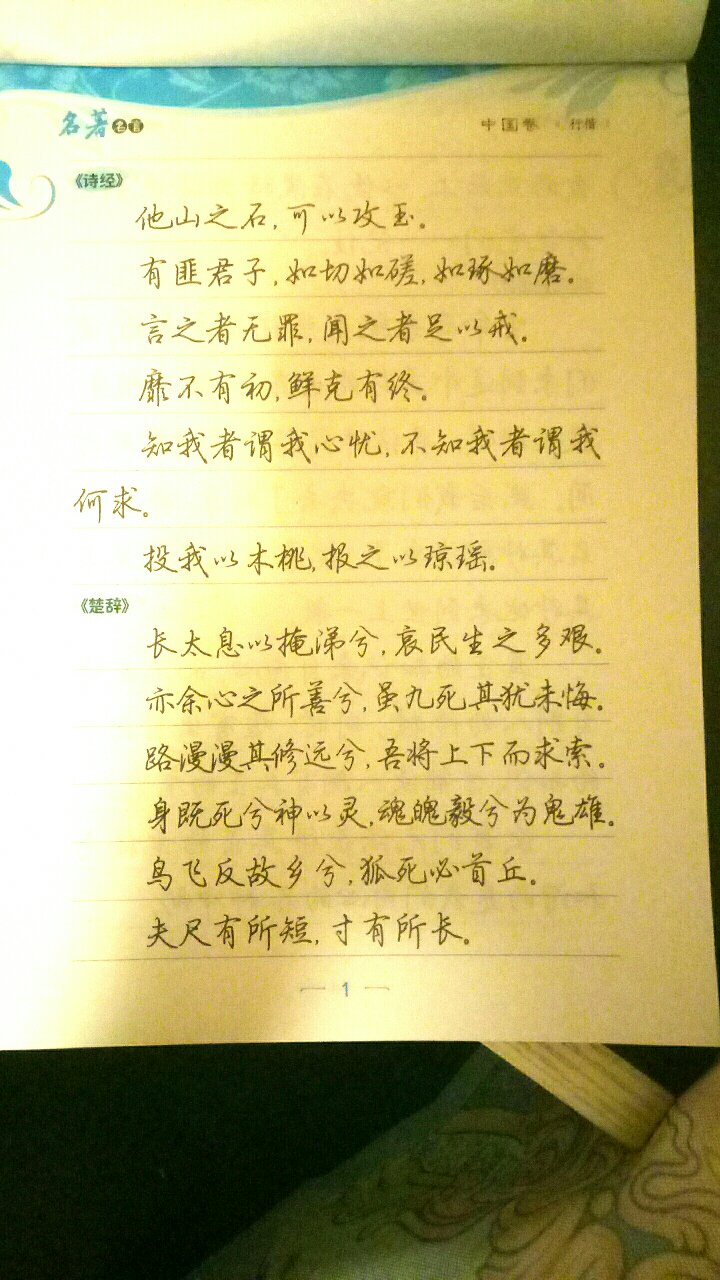 名著名言
中国卷（行楷）
《诗经》
他山之石，可以攻玉。
有匪君子，如切如磋，如琢如磨。
言之者无罪，闻之者足以戒。
靡不有初，鲜克有终。
知我者谓我心忧，不知我者谓我
何求。
投我以木桃，报之以琼瑶。
《楚辞》
长太息以掩涕兮，哀民生之多艰。
亦余心之所善兮，虽九死其犹未悔。
路漫漫其修远兮，吾将上下而求索。
身既死兮神以灵，魂魄毅兮为鬼雄。
鸟飞反故乡兮，狐死必首丘。
夫尺有所短，寸有所长。
1